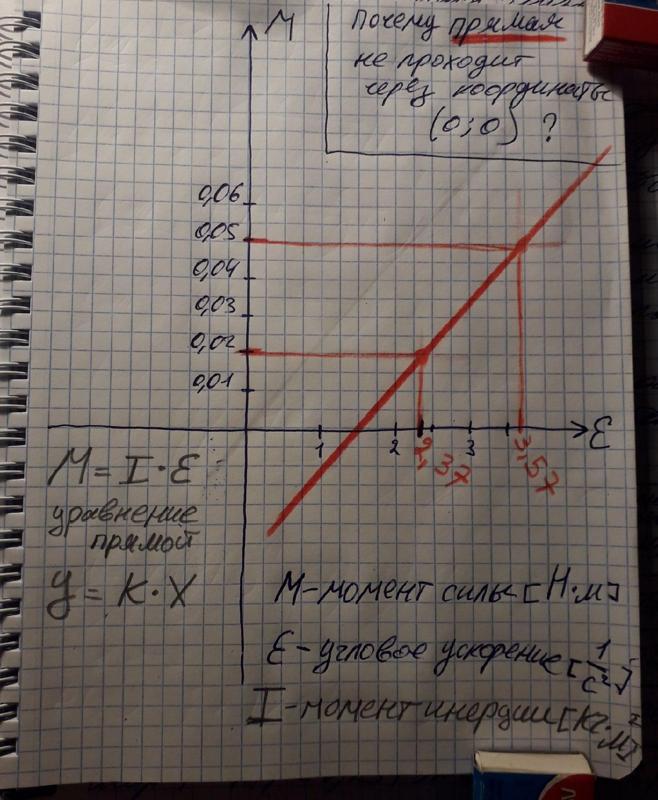 Почему прямая
не проходит
через координаты
(0;0) ?
M
0,06
0,05
0,04
0,03
0,02
0,01
1
2
3
ε
2,37
3,57
M = I · ε
уравнение
прямой
y = k · x
M - момент силы [Н·м]
ε - угловое ускорение [1/с²]
I - момент инерции [кг·м²]